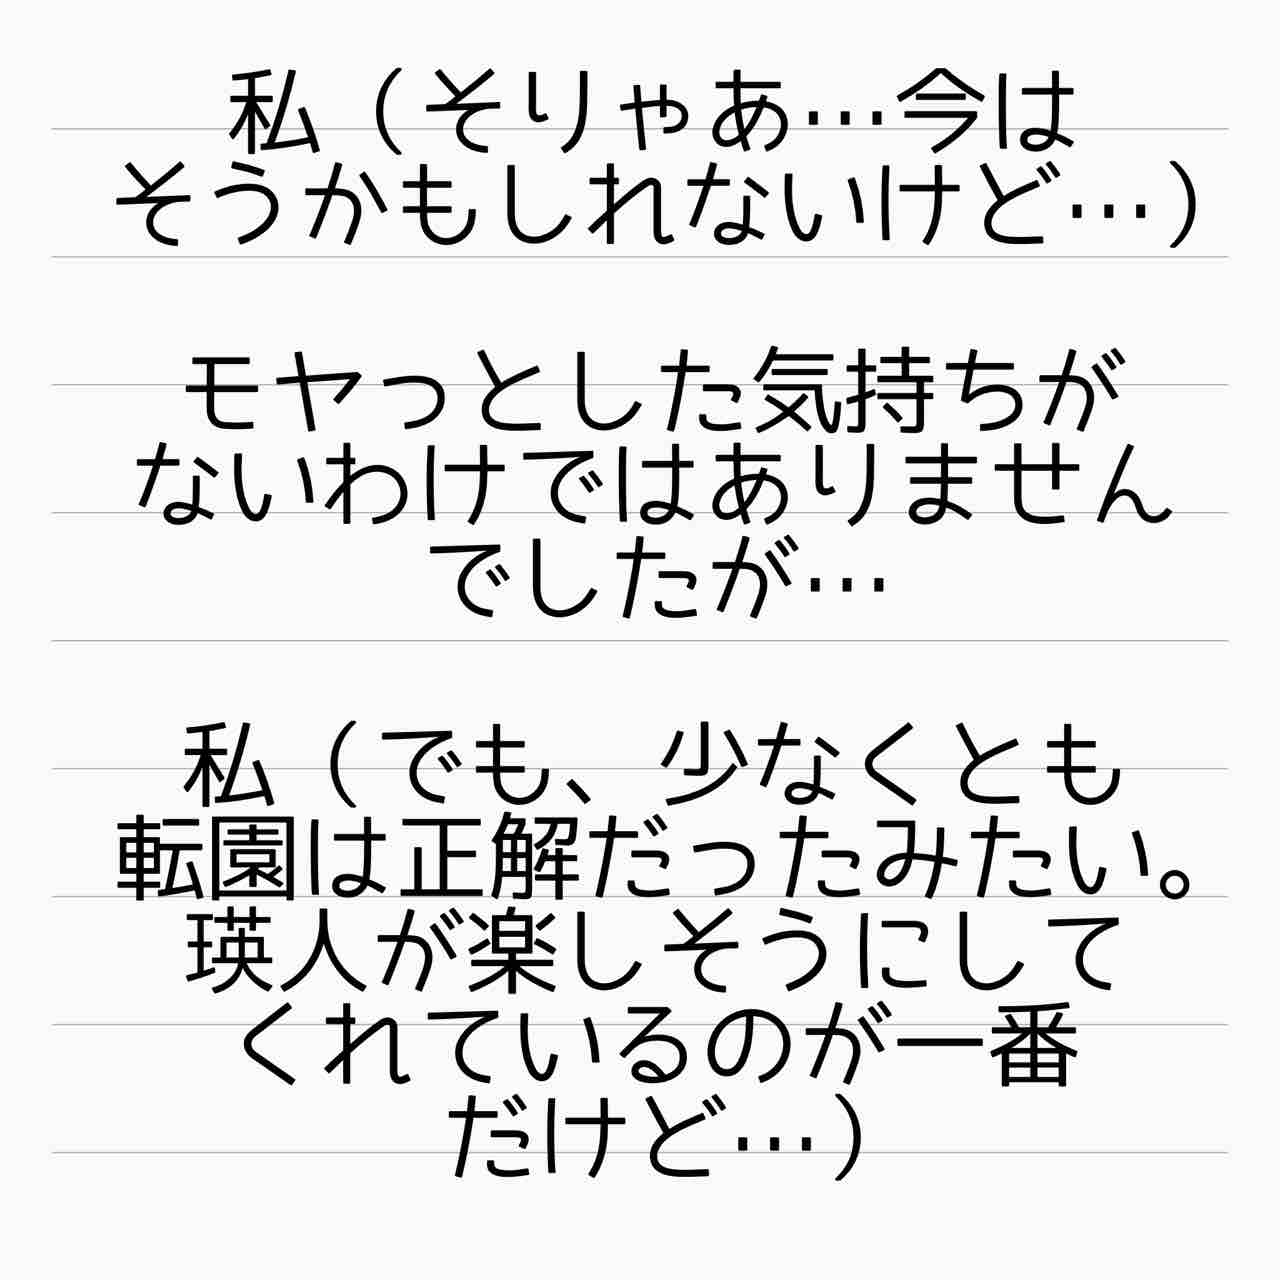 私（そりゃあ…今は
そうかもしれないけど…）
モヤっとした気持ちが
ないわけではありません
でしたが…
私（でも、少なくとも
転園は正解だったみたい。
瑛人が楽しそうにして
くれているのが一番
だけど…）